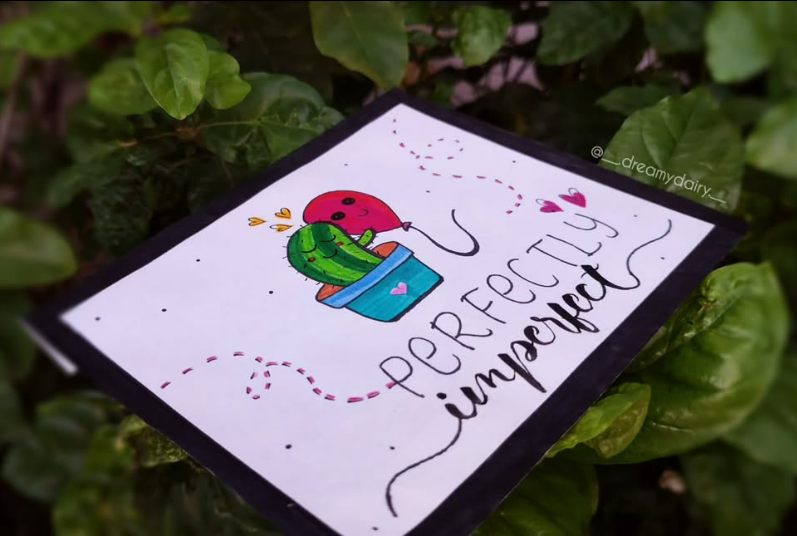 @__dreamydairy__
PERFECTLY
imperfect